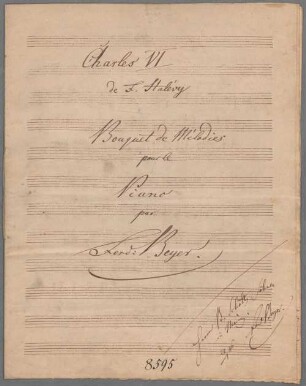 Charles VI
de F. Halévy
Bouquet de Mélodies
pour le
Piano
par
Ferd. Beyer.
8595